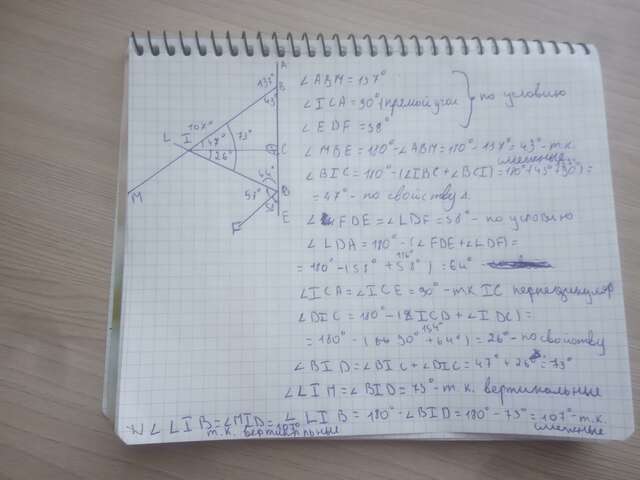 A
137°
B
43°
107°
L I 47° 73°
26°
C
M
64°
57° D
58°
E
F
∠ABM = 137°
∠ICA = 90° (прямой угол
∠EDF = 58°
} по условию
∠MBE = 180° - ∠ABM = 180° - 137° = 43° - т.к.
смежные
∠BIC = 180° - (∠IBC + ∠BCI) = 180° - (43° + 90°) =
= 47° - по свойству
∠FDE = ∠LDF = 58° - по условию
∠LDA = 180° - (∠FDE + ∠LDF) =
116°
= 180° - (58° + 58°) = 64°
∠ICA = ∠ICE = 90° - т.к IC перпендикуляр
∠DIC = 180° - (∠ICD + ∠IDC) =
154°
= 180° - (90° + 64°) = 26° - по свойству
∠BID = ∠BIC + ∠DIC = 47° + 26° = 73°
∠LIM = ∠BID = 73° - т. к. вертикальные
∠LIB = ∠MID = ∠LIB = 180° - ∠BID = 180° - 73° = 107° - т.к.
т. к. вертикальные 107° смежные